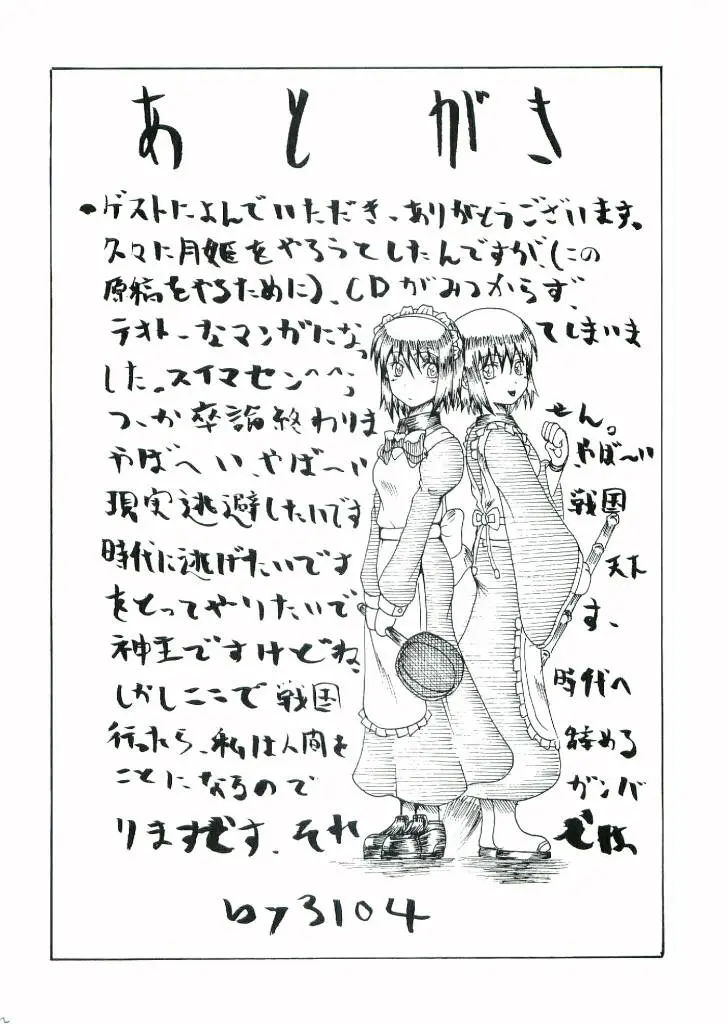 あとがき
・ゲストによんでいただき、ありがとうございます。
久々に月姫をやろうてしたんですが、(この
原稿をやるために)、CDがみつからず、
テキトーなマンガになってしまいま
した。スイマセン^^;
つーか卒論終わりません。
やばへい、やば〜い やば〜い
現実逃避したいです 戦国
時代に逃げたいです 天下
をとってやりたいです、
神主ですけどね、
しかしここで戦国時代へ
行ったら、私は人間を辞める
ことになるので ガンバ
りますです。それでは
by 3104